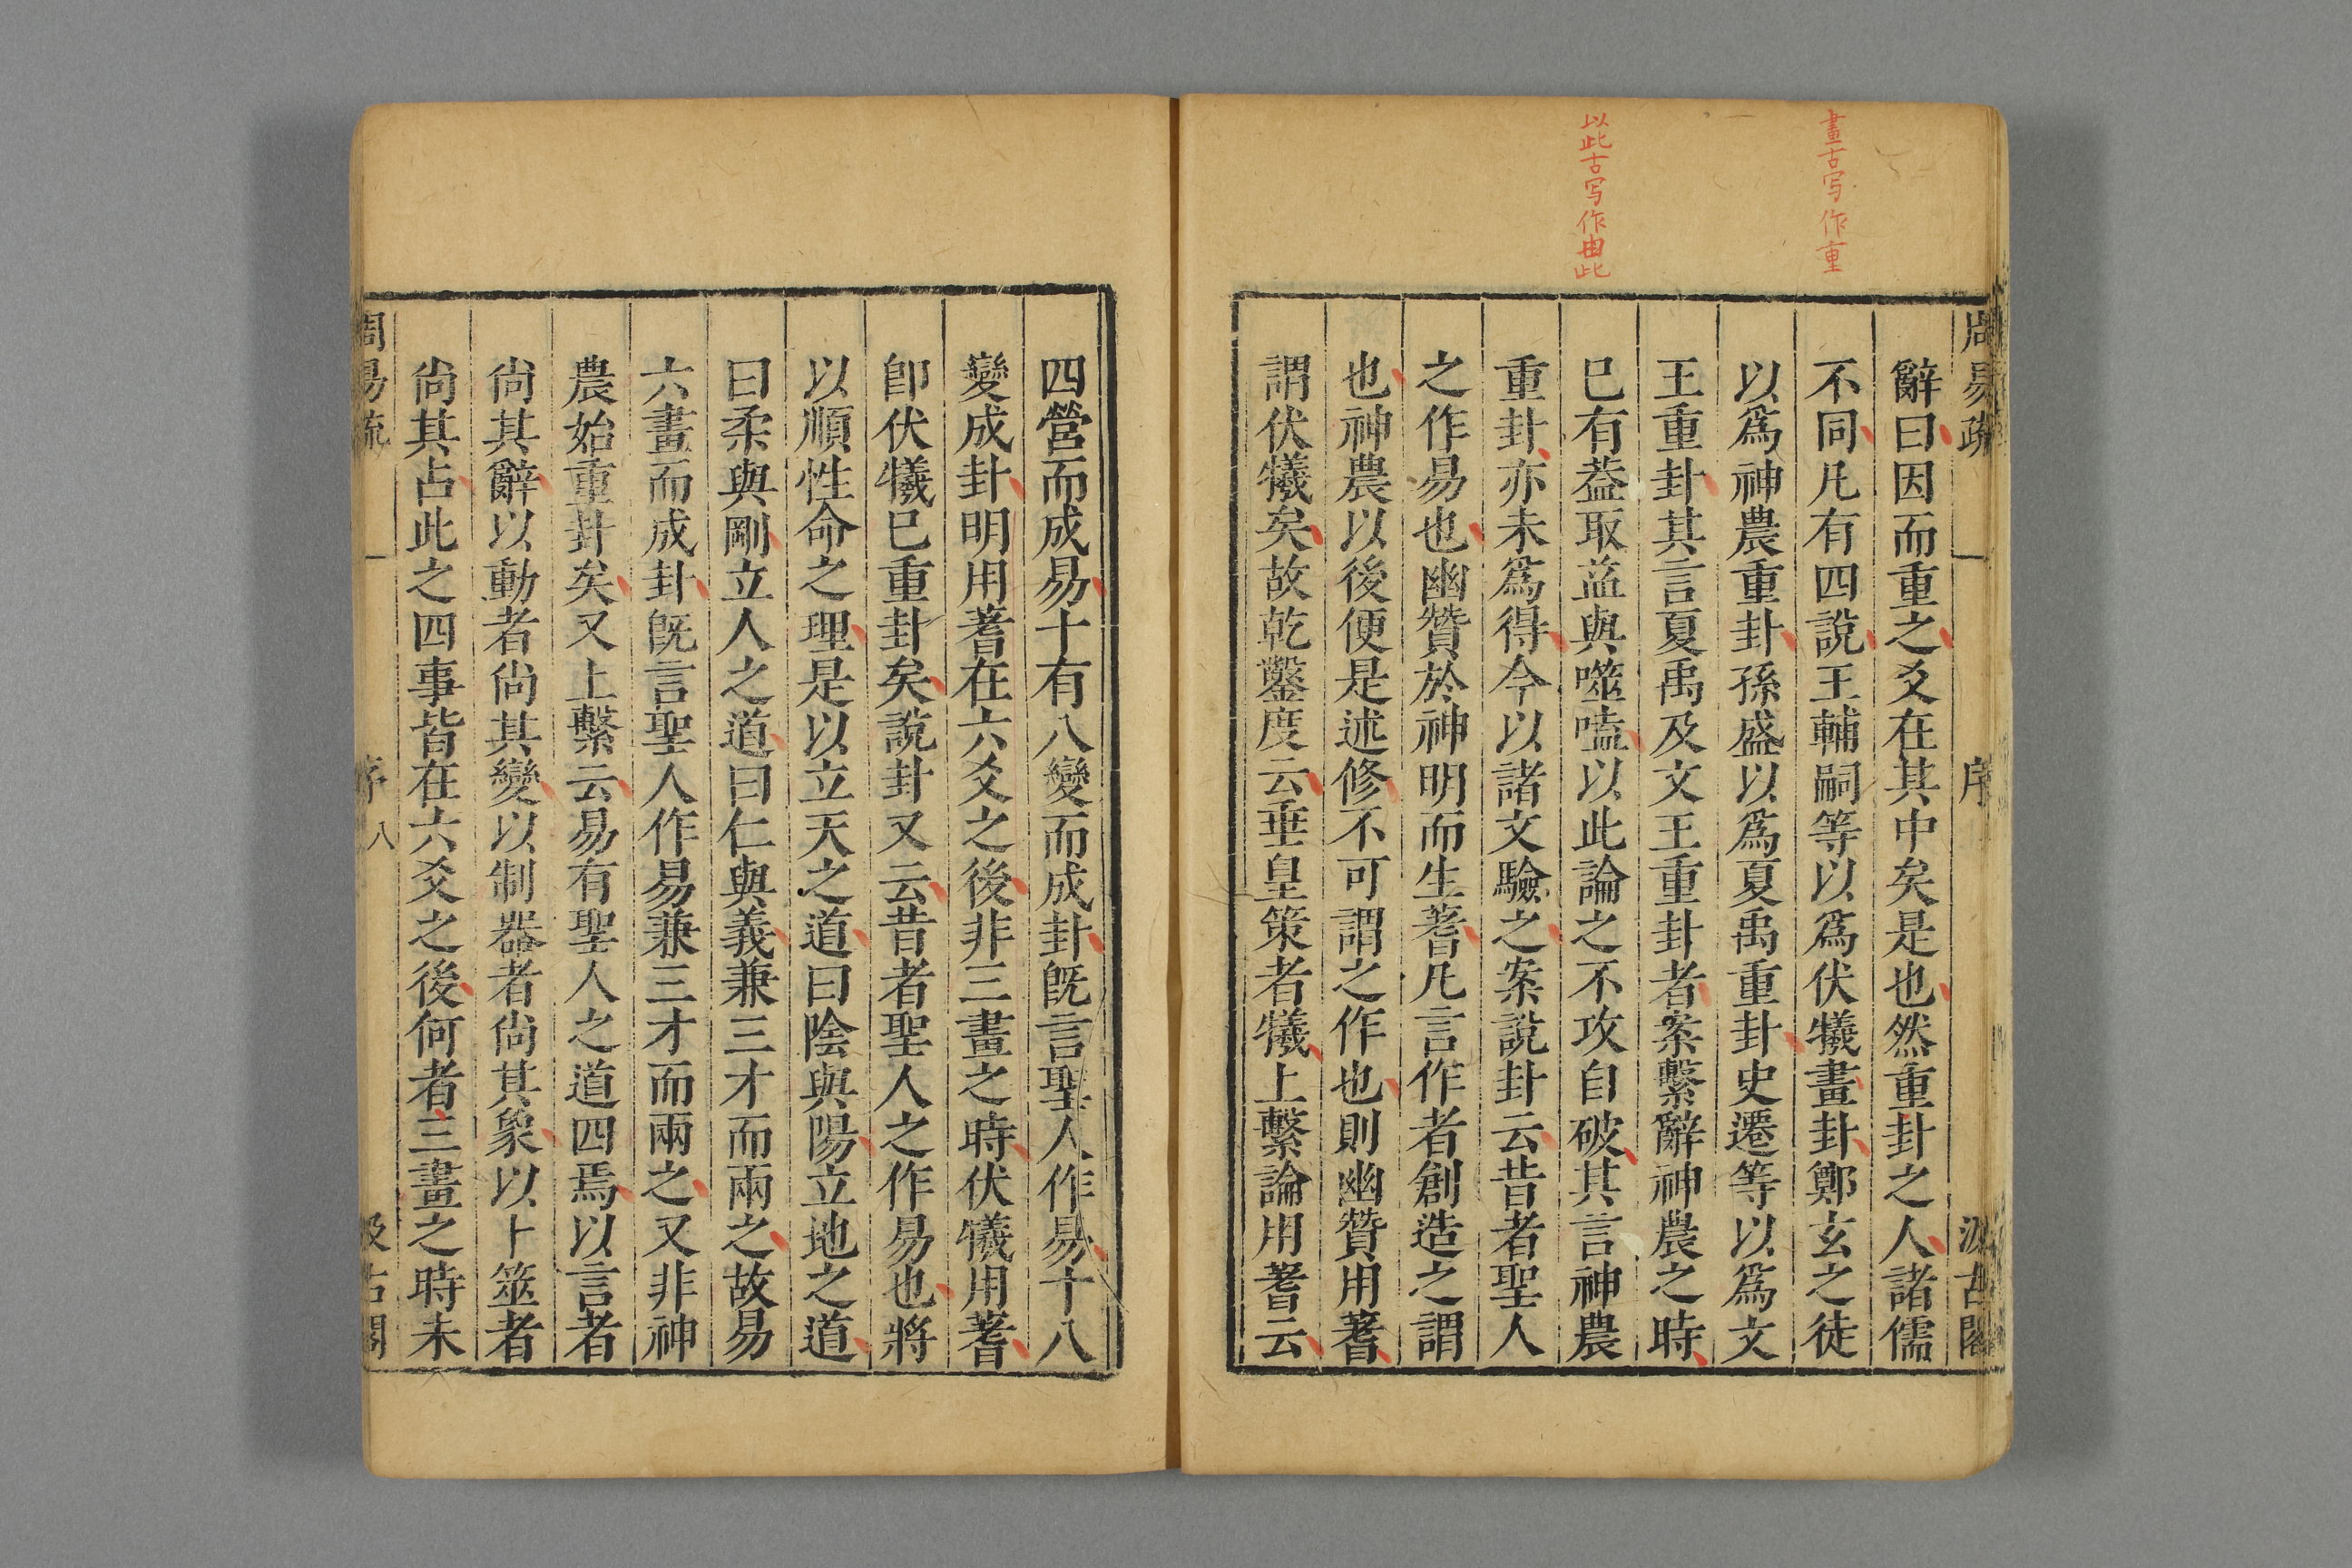 畫古写作重
以此古写作由此
周易疏 一 序 汲古閣
辭曰因而重之爻在其中矣是也然重卦之人諸儒
不同凡有四說王輔嗣等以爲伏犧畫卦鄭玄之徒
以爲神農重卦孫盛以爲夏禹重卦史遷等以爲文
王重卦其言夏禹及文王重卦者案繫辭神農之時
巳有葢取益與噬嗑以此論之不攻自破其言神農
重卦亦未爲得今以諸文驗之案說卦云昔者聖人
之作易也幽贊於神明而生蓍凡言作者創造之謂
也神農以後便是述修不可謂之作也則幽贊用蓍
謂伏犧矣故乾鑿度云垂皇策者犧上繫論用蓍云
四營而成易十有八變而成卦旣言聖人作易十八
變成卦明用蓍在六爻之後非三畫之時伏犧用蓍
卽伏犧巳重卦矣說卦又云昔者聖人之作易也將
以順性命之理是以立天之道曰陰與陽立地之道
曰柔與剛立人之道曰仁與義兼三才而兩之故易
六畫而成卦旣言聖人作易兼三才而兩之又非神
農始重卦矣又上繫云易有聖人之道四焉以言者
尙其辭以動者尙其變以制器者尙其象以卜筮者
尙其占此之四事皆在六爻之後何者三畫之時未
周易疏 一 序 八 汲古閣